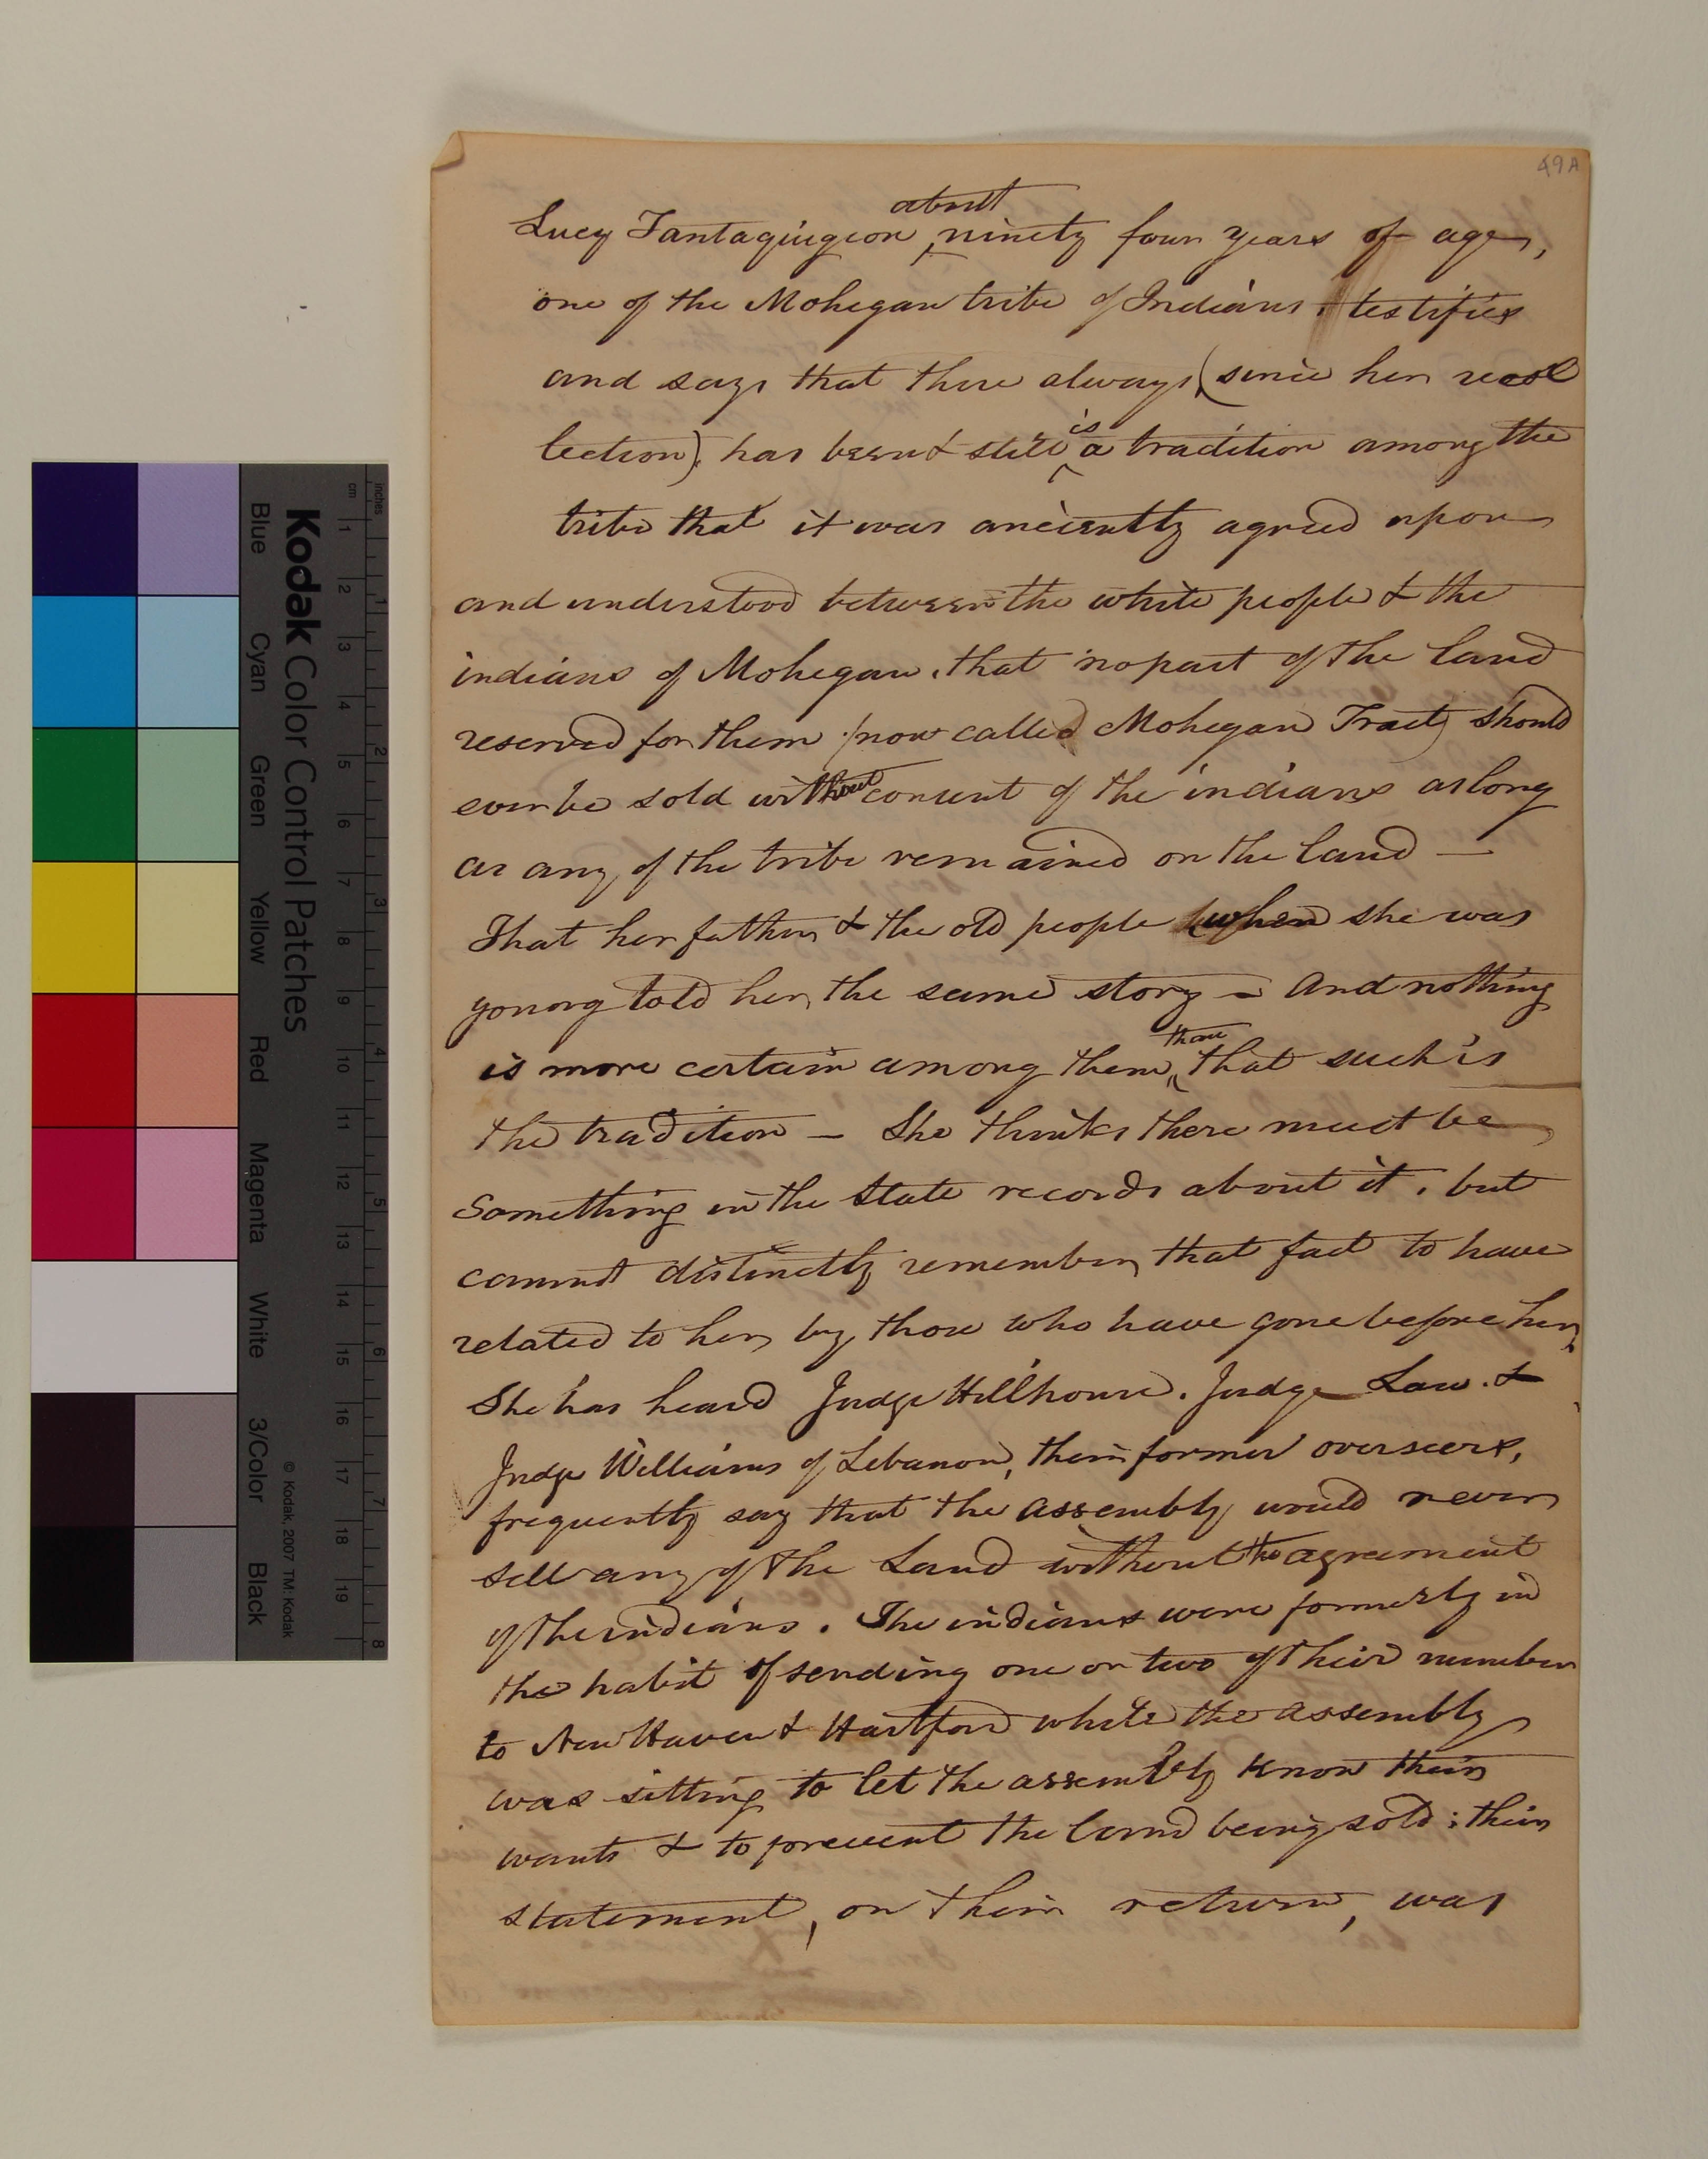 49A
about
Lucy Tantaquigeon ninety four years of age,
one of the Mohegan tribe of Indians, testifies
and says that there always, (since her recol
lection), has been & still is a tradition among the
tribe that it was anciently agreed upon
and understood between the white people & the
indians of Mohegan, that no part of the land
reserved for them (now called Mohegan Tract) should
ever be sold without consent of the indians as long
as any of the tribe remained on the land —
That her father & the old people when she was
young told her the same story — And nothing
is more certain among them, than that such is
the tradition — She thinks there must be
Something in the State records about it, but
cannot distinctly remember that fact to have
related to her by those who have gone before her,
She has heard Judge Hillhouse, Judge Law. &
Judge Williams of Lebanon, their former overseers,
frequently say that the assembly would never
sell any of the Land without the agreement
of the indians. The indians were formerly in
the habit of sending one or two of their number
to New Haven & Hartford while the assembly
was sitting to let the assembly know their
wants & to prevent the land being sold; their
statement, on their return, was
Kodak Color Control Patches
Blue Cyan Green Yellow Red Magenta White 3/Color Black
© Kodak, 2007 TM: Kodak
inches 1 2 3 4 5 6 7 8
cm 1 2 3 4 5 6 7 8 9 10 11 12 13 14 15 16 17 18 19